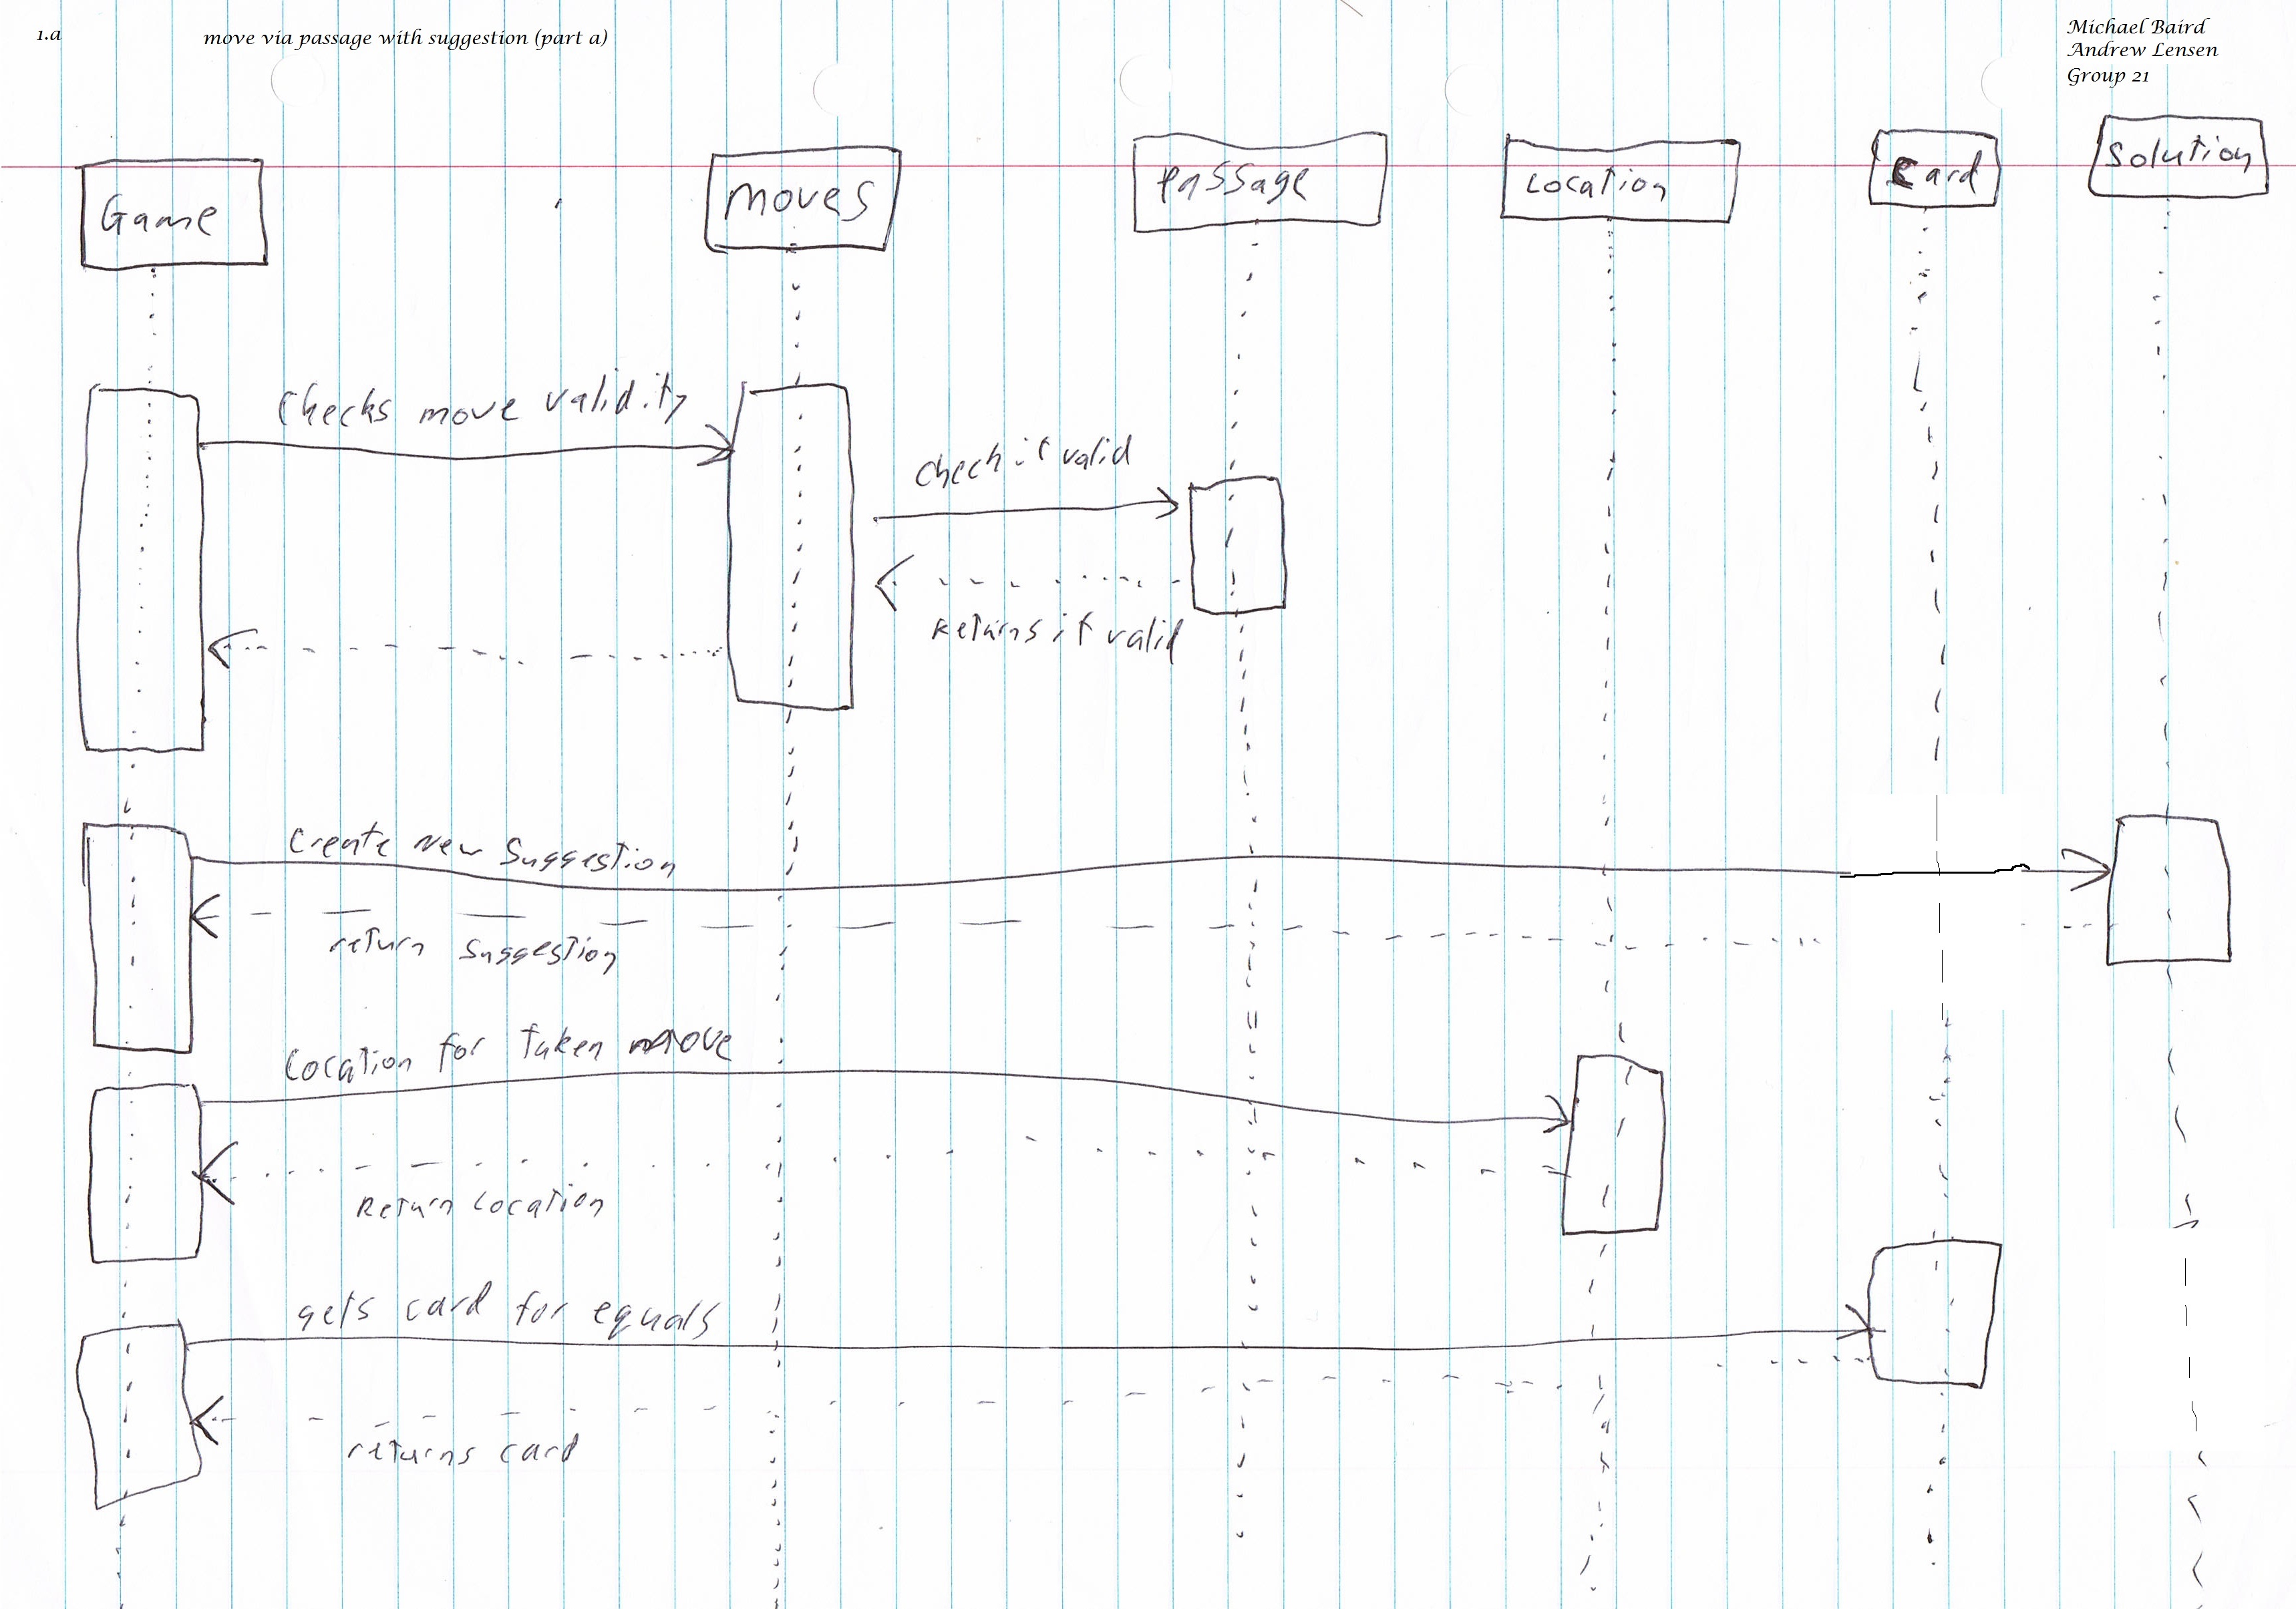 1.a
move via passage with suggestion (part a)
Michael Baird
Andrew Lensen
Group 21
Game
moves
passage
Location
Card
Solution
Checks move validity
check if valid
Returns if valid
Create new Suggestion
return suggestion
Location for taken move
Return Location
gets card for equals
returns card